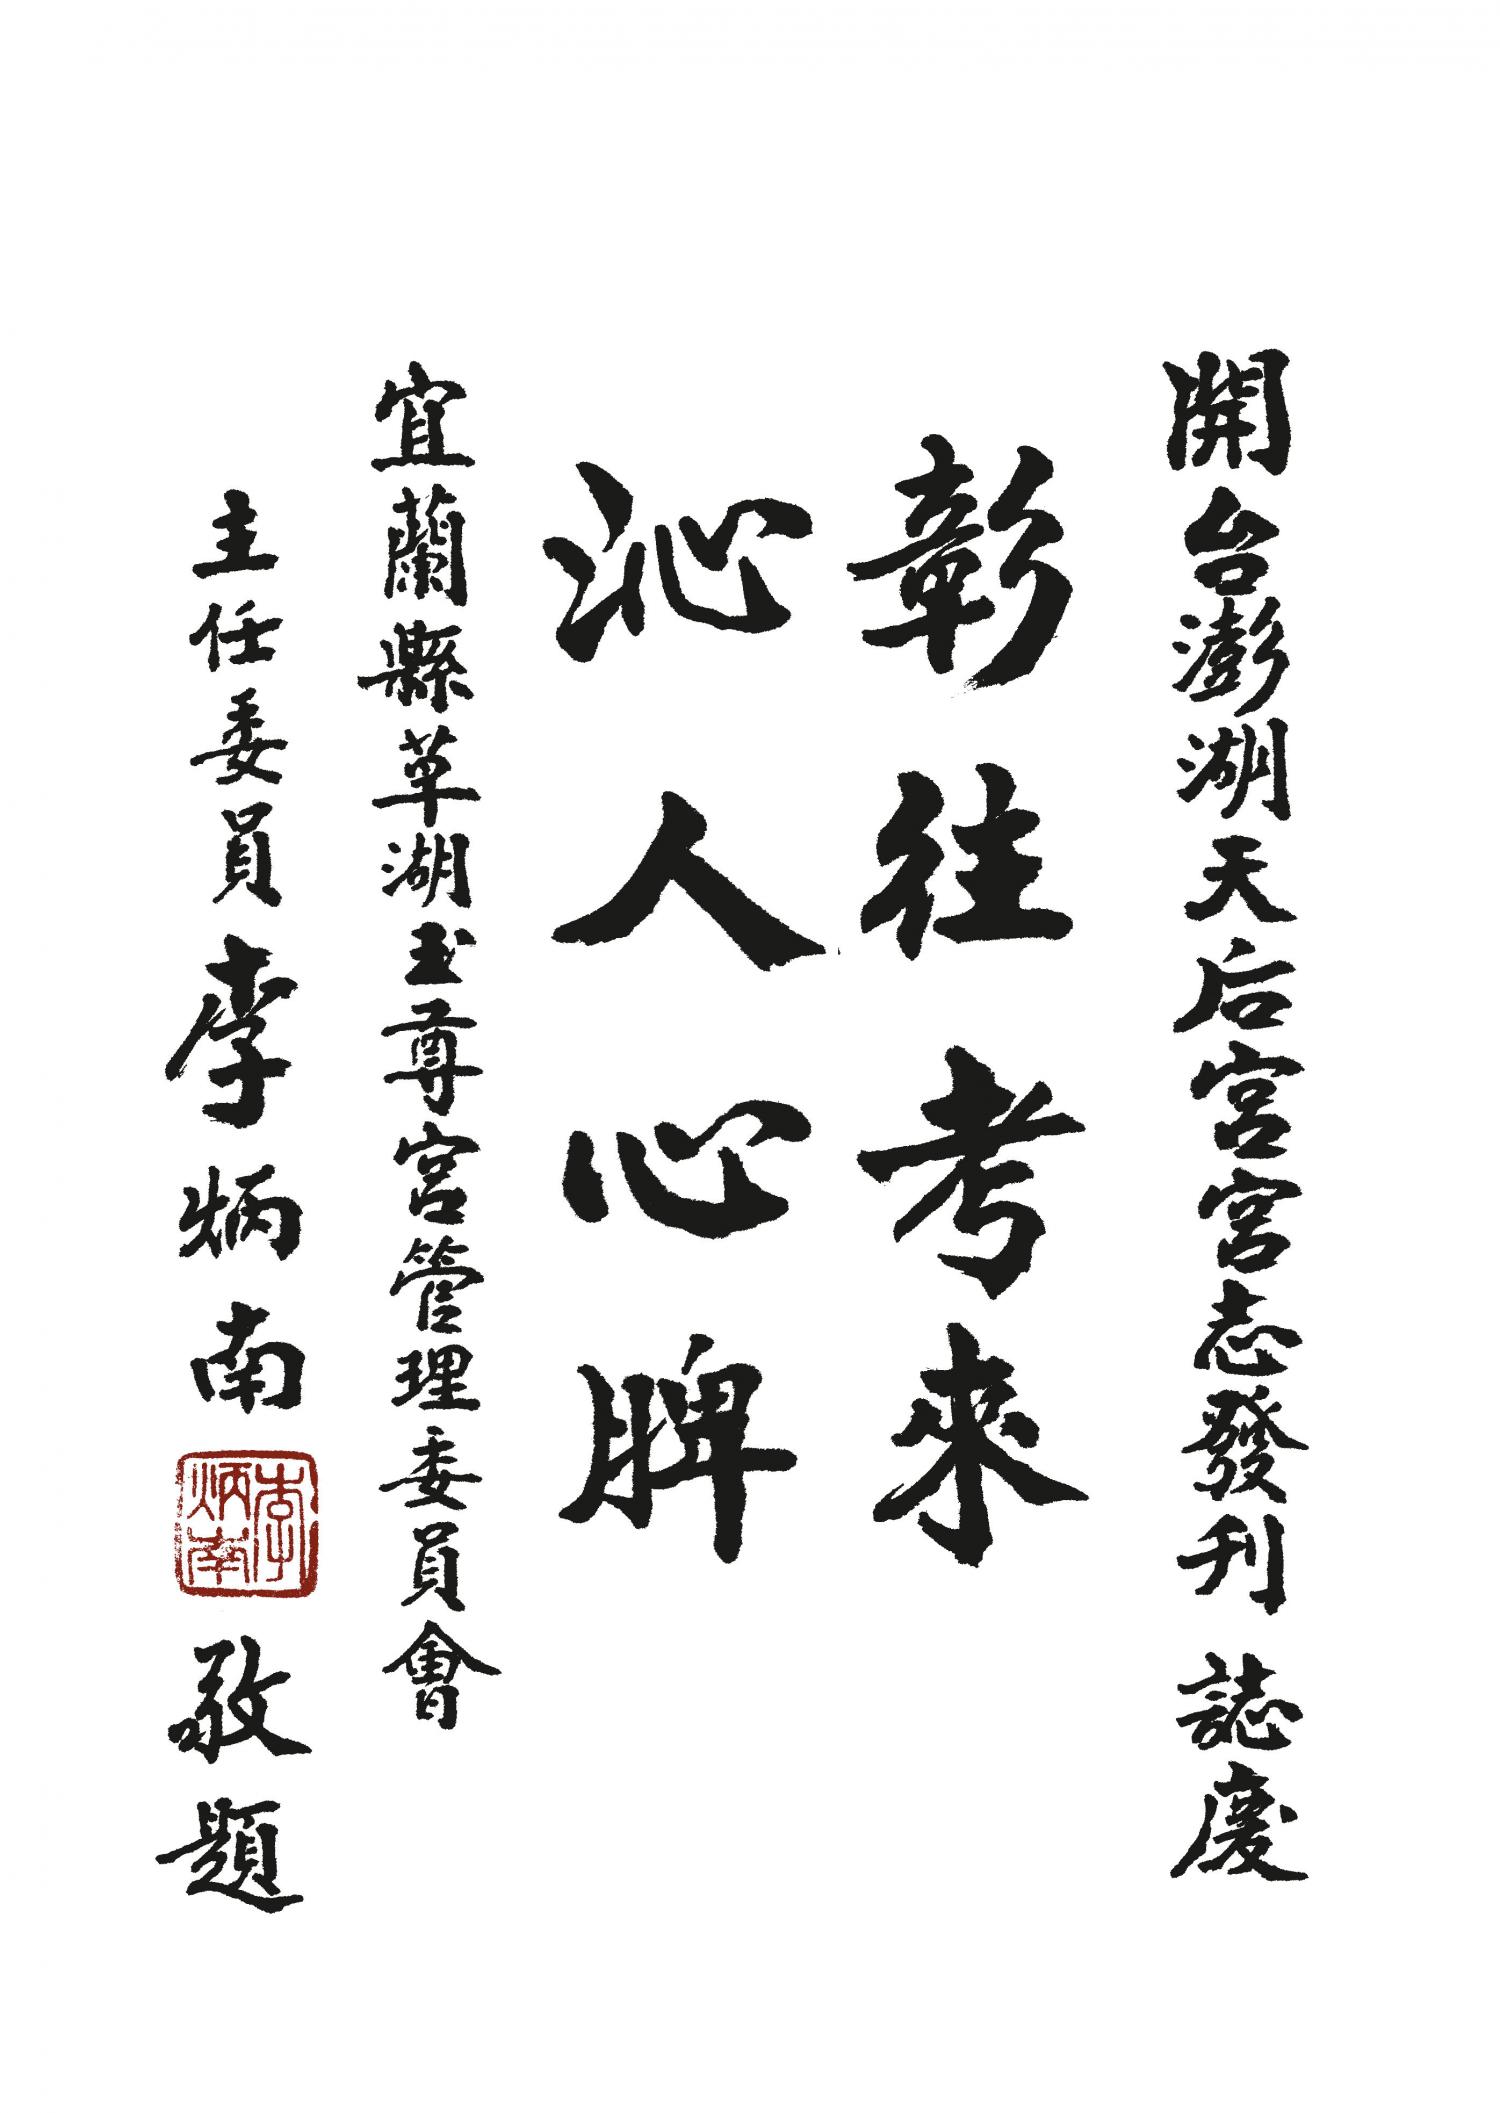 開台澎湖天后宮宮志發刊 誌慶
彰往考來
沁人心脾
宜蘭縣草湖玉尊宮管理委員會
主任委員李炳南
李炳南
敬題